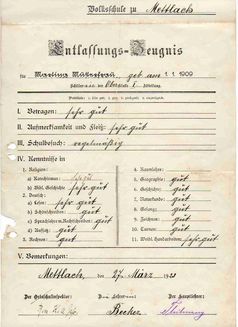 Volksschule zu Mettlach
Entlassungs-Zeugnis
für Martina geb. am 1.1.1909
Schüler der Abteilung
I. Betragen: sehr gut
II. Aufmerksamkeit und Fleiß: sehr gut
III. Schulbesuch: regelmäßig
IV. Kenntnisse in
1. Religion:
a) Katechismus: sehr gut
b) Bibl. Geschichte: sehr gut
2. Deutsch:
a) Lesen: sehr gut
b) Schönschreiben: gut
c) Sprachlehre, Rechtschreiben: gut
d) Aufsatz: gut
3. Rechnen: gut
4. Raumlehre:
5. Geographie: gut
6. Geschichte: gut
7. Naturkunde: gut
8. Gesang: gut
9. Zeichnen: gut
10. Turnen: gut
11. Weibl. Handarbeiten: sehr gut
V. Bemerkungen:
Mettlach, den 27. März 1923
Der Ortsschulinspektor:
Der Hauptlehrer:
Becker